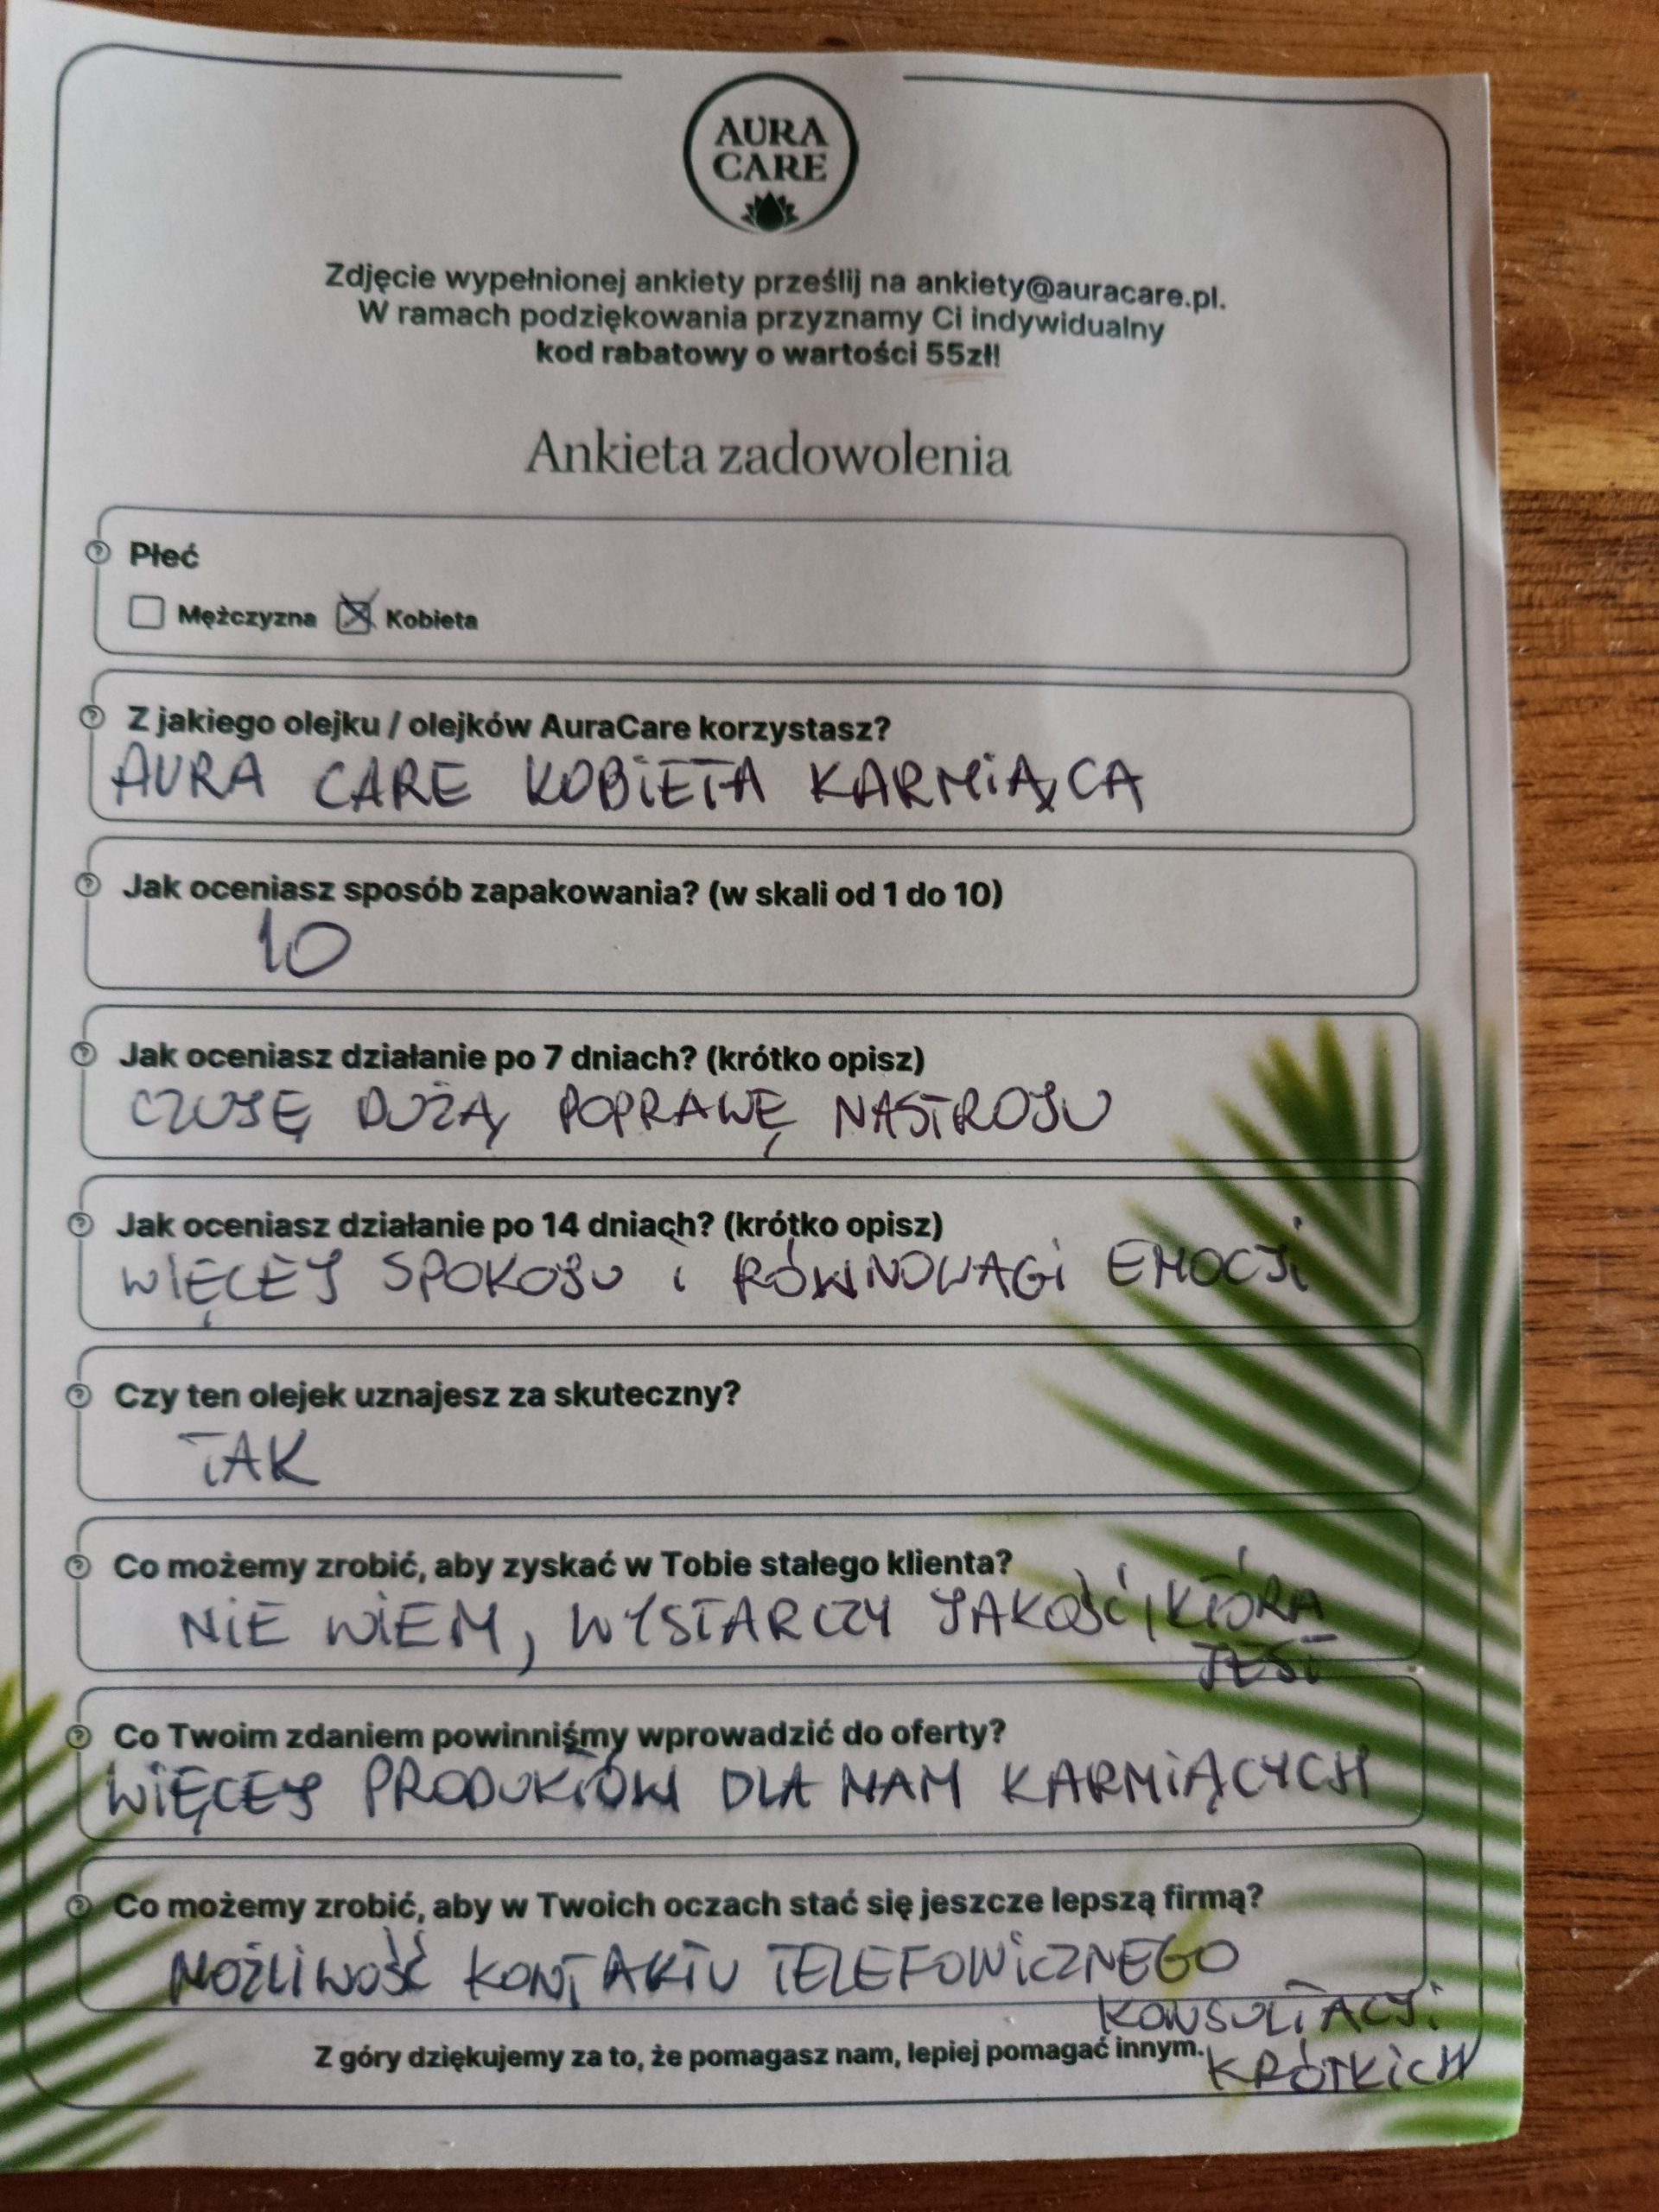 AURA
CARE
Zdjęcie wypełnionej ankiety prześlij na ankiety@auracare.pl.
W ramach podziękowania przyznamy Ci indywidualny
kod rabatowy o wartości 55zł!
Ankieta zadowolenia
Płeć
Mężczyzna Kobieta
Z jakiego olejku / olejków AuraCare korzystasz?
AURA CARE KOBIETA KARMIĄCA
Jak oceniasz sposób zapakowania? (w skali od 1 do 10)
10
Jak oceniasz działanie po 7 dniach? (krótko opisz)
CZUJĘ DUŻĄ POPRAWĘ NASTROJU
Jak oceniasz działanie po 14 dniach? (krótko opisz)
WIĘCEJ SPOKOJU i RÓWNOWAGI EMOCJI
Czy ten olejek uznajesz za skuteczny?
TAK
Co możemy zrobić, aby zyskać w Tobie stałego klienta?
NIE WIEM, WYSTARCZY JAKOŚĆ, KTÓRA
JEST
Co Twoim zdaniem powinniśmy wprowadzić do oferty?
WIĘCEJ PRODUKTÓW DLA MAM KARMIĄCYCH
Co możemy zrobić, aby w Twoich oczach stać się jeszcze lepszą firmą?
MOŻLIWOŚĆ KONTAKTU TELEFONICZNEGO
KONSULTACJI
Z góry dziękujemy za to, że pomagasz nam, lepiej pomagać innym.
KRÓTKICH